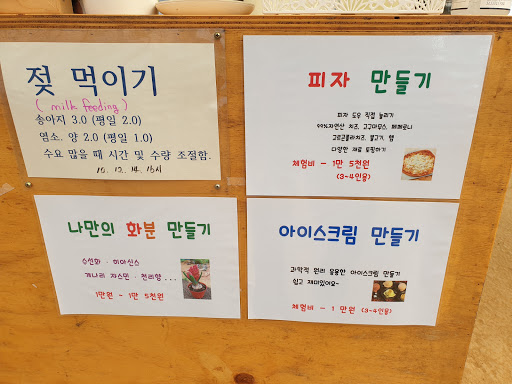 젖 먹이기
( milk feeding )
송아지 3.0 (평일 2.0)
염소. 양 2.0 (평일 1.0)
수요 많을 때 시간 및 수량 조절함.
10. 12. 14. 16시
피자 만들기
피자 도우 직접 늘리기
99%자연산 치즈, 고구마무스, 페페로니
고르곤졸라치즈, 불고기, 햄
다양한 재료 토핑하기
체험비 - 1만 5천원
(3~4인용)
나만의 화분 만들기
수선화 · 히아신스
개나리 쟈스민 · 천리향 ...
1만원 - 1만 5천원
아이스크림 만들기
과학적 원리 응용한 아이스크림 만들기
쉽고 재미있어요~
체험비 - 1 만원 (3~4인용)